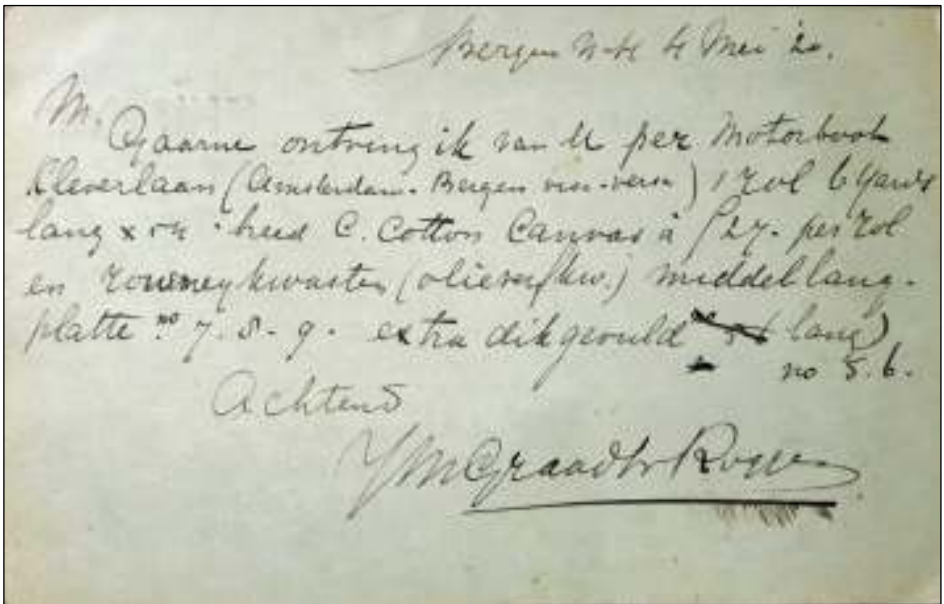 Bergen N-H 4 Mei 20.
M.
Gaarne ontving ik van U per Motorboot
Kleverlaan (Amsterdam-Bergen vice-versa) 1 rol 6 Yards
lang x breed C. Cotton Canvas à f27.- per rol
en Rowneykwasten (olieverfkw.) middel lang-
platte no 7. 8. 9. extra dik gevuld lang)
no 5. 6.
Achtend
GraadtvRoggen